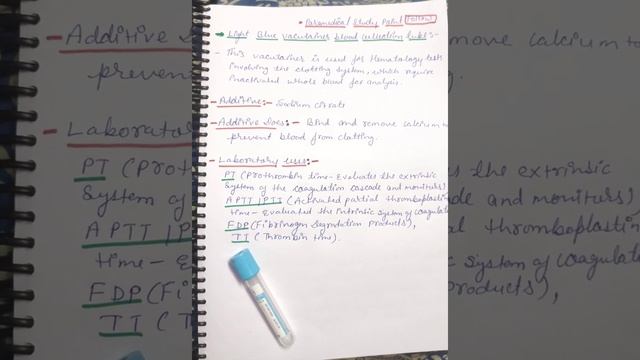 • Paramedical Study Point Follow
→ Light Blue vacutainer blood collection tube :-
- This vacutainer is used for Hematology tests
involving the clotting system, which require
inactivated whole blood for analysis.
- Additive :- Sodium citrate
- Additive Does :- Bind and remove calcium to
prevent blood from clotting.
- Laboratory uses :-
PT (Prothrombin time - Evaluates the extrinsic
System of the coagulation cascade and monitors)
APTT / PTT (Activated partial thromboplastin
time - Evaluated the intrinsic system of coagulation
FDP (Fibrinogen Degradation Products),
TT (Thrombin time).
- Additive Do
prevent
- Laborator
PT (Proth
System of
APTT / P
time - E
FDP (Fi
TT (T
emove calcium to
the extrinsic
monitors)
thromboplastin
c system of coagula
oducts),